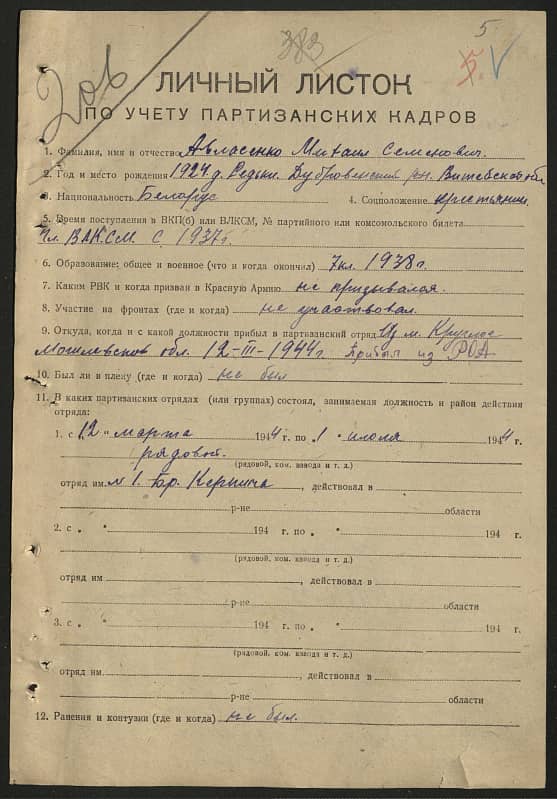 383
5
5 V
ЛИЧНЫЙ ЛИСТОК
ПО УЧЕТУ ПАРТИЗАНСКИХ КАДРОВ
1. Фамилия, имя и отчество Авласенко Михаил Семенович.
2. Год и место рождения 1924 г. Редьки Дубровенский рн. Витебской обл
3. Национальность Беларус 4. Соцположение крестьянин
5. Время поступления в ВКП(б) или ВЛКСМ, № партийного или комсомольского билета
Чл. ВЛКСМ. С. 1937 г.
6. Образование: общее и военное (что и когда окончил) 7 кл. 1938 г.
7. Каким РВК и когда призван в Красную Армию не призывался.
8. Участие на фронтах (где и когда) не участвовал.
9. Откуда, когда и с какой должности прибыл в партизанский отряд Из м. Круглое
Могилевской обл. 12-III-1944 г. Прибыл из РОА
10. Был ли в плену (где и когда) не был
11. В каких партизанских отрядах (или группах) состоял, занимаемая должность и район действия
отряда:
1. с „12" марта 1944 г. по „1" июля 1944 г.
рядовой.
(рядовой, ком. взвода и т. д.)
отряд им. № 1. бр. Кирпича, действовал в
р-не области
2. с „ " 194 г. по „ " 194 г.
(рядовой, ком. взвода и т. д.)
отряд им , действовал в
р-не области
3. с „ " 194 г. по „ " 194 г.
(рядовой, ком. взвода и т. д.)
отряд им. , действовал в
р-не области
12. Ранения и контузии (где и когда) не был.